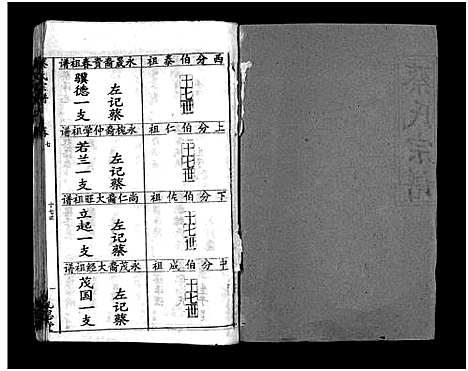 西分伯泰祖
十七世
永晟裔贵春祖谱
左记蔡
骥德一支
上分伯仁祖
十七世
永槐裔仲学祖谱
左记蔡
若兰一支
下分伯佐祖
十七世
尚仁裔大旺祖谱
左记蔡
立起一支
中分伯成祖
十七世
永茂裔大经祖谱
左记蔡
茂国一支
十七世
七
氏宗谱